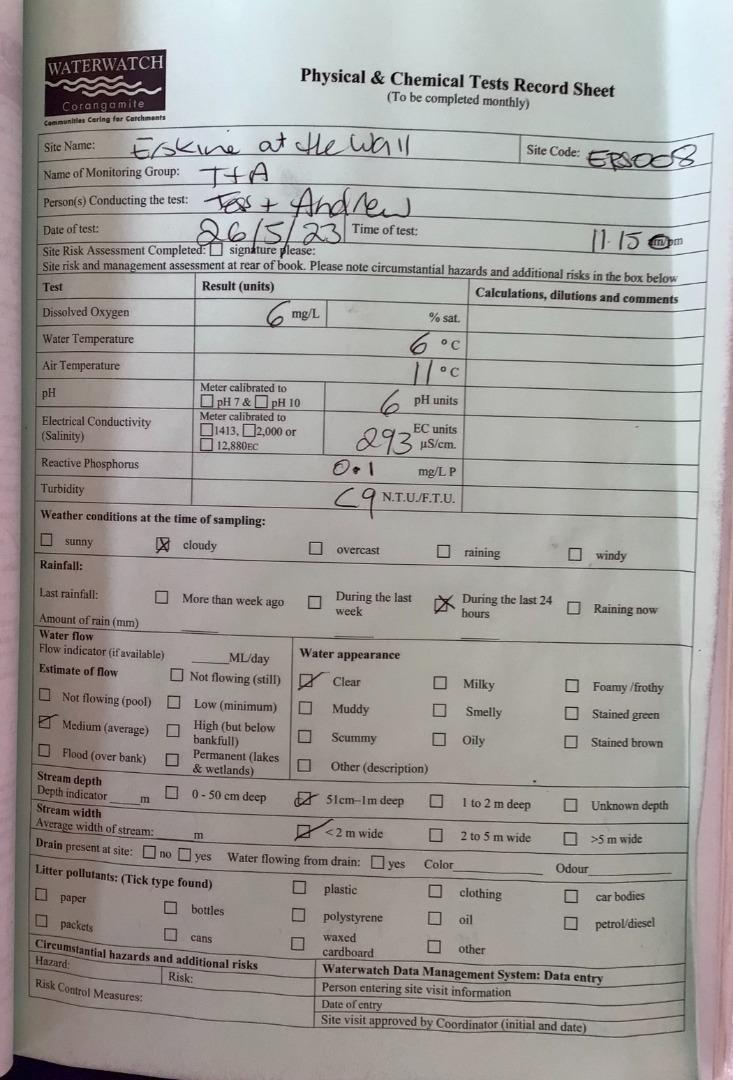 WATERWATCH
Corangamite
Communities Caring for Catchments
Physical & Chemical Tests Record Sheet
(To be completed monthly)
Site Name: Erskine at the Wall Site Code: ERS008
Name of Monitoring Group: T+A
Person(s) Conducting the test: Tess + Andrew
Date of test: 26/5/23 Time of test: 11.15 am/pm
Site Risk Assessment Completed: ☐ signature please:
Site risk and management assessment at rear of book. Please note circumstantial hazards and additional risks in the box below
Test Result (units) Calculations, dilutions and comments
Dissolved Oxygen 6 mg/L % sat.
Water Temperature 6 °C
Air Temperature 11 °C
pH Meter calibrated to ☐ pH 7 & ☐ pH 10 6 pH units
Electrical Conductivity (Salinity) Meter calibrated to ☐ 1413, ☐ 2,000 or ☐ 12,880EC 293 EC units µS/cm.
Reactive Phosphorus 0.1 mg/L P
Turbidity <9 N.T.U./F.T.U.
Weather conditions at the time of sampling:
☐ sunny ☒ cloudy ☐ overcast ☐ raining ☐ windy
Rainfall:
Last rainfall: ☐ More than week ago ☐ During the last week ☒ During the last 24 hours ☐ Raining now
Amount of rain (mm)
Water flow
Flow indicator (if available) ____ML/day
Estimate of flow ☐ Not flowing (still)
☐ Not flowing (pool) ☐ Low (minimum)
☑ Medium (average) ☐ High (but below bankfull)
☐ Flood (over bank) ☐ Permanent (lakes & wetlands)
Water appearance
☑ Clear ☐ Milky ☐ Foamy /frothy
☐ Muddy ☐ Smelly ☐ Stained green
☐ Scummy ☐ Oily ☐ Stained brown
☐ Other (description)
Stream depth
Depth indicator ____ m ☐ 0 - 50 cm deep ☑ 51cm–1m deep ☐ 1 to 2 m deep ☐ Unknown depth
Stream width
Average width of stream: ____ m ☑ < 2 m wide ☐ 2 to 5 m wide ☐ >5 m wide
Drain present at site: ☐ no ☐ yes Water flowing from drain: ☐ yes Color____ Odour____
Litter pollutants: (Tick type found) ☐ plastic ☐ clothing ☐ car bodies
☐ paper ☐ bottles ☐ polystyrene ☐ oil ☐ petrol/diesel
☐ packets ☐ cans ☐ waxed cardboard ☐ other
Circumstantial hazards and additional risks
Hazard: Risk:
Risk Control Measures:
Waterwatch Data Management System: Data entry
Person entering site visit information
Date of entry
Site visit approved by Coordinator (initial and date)